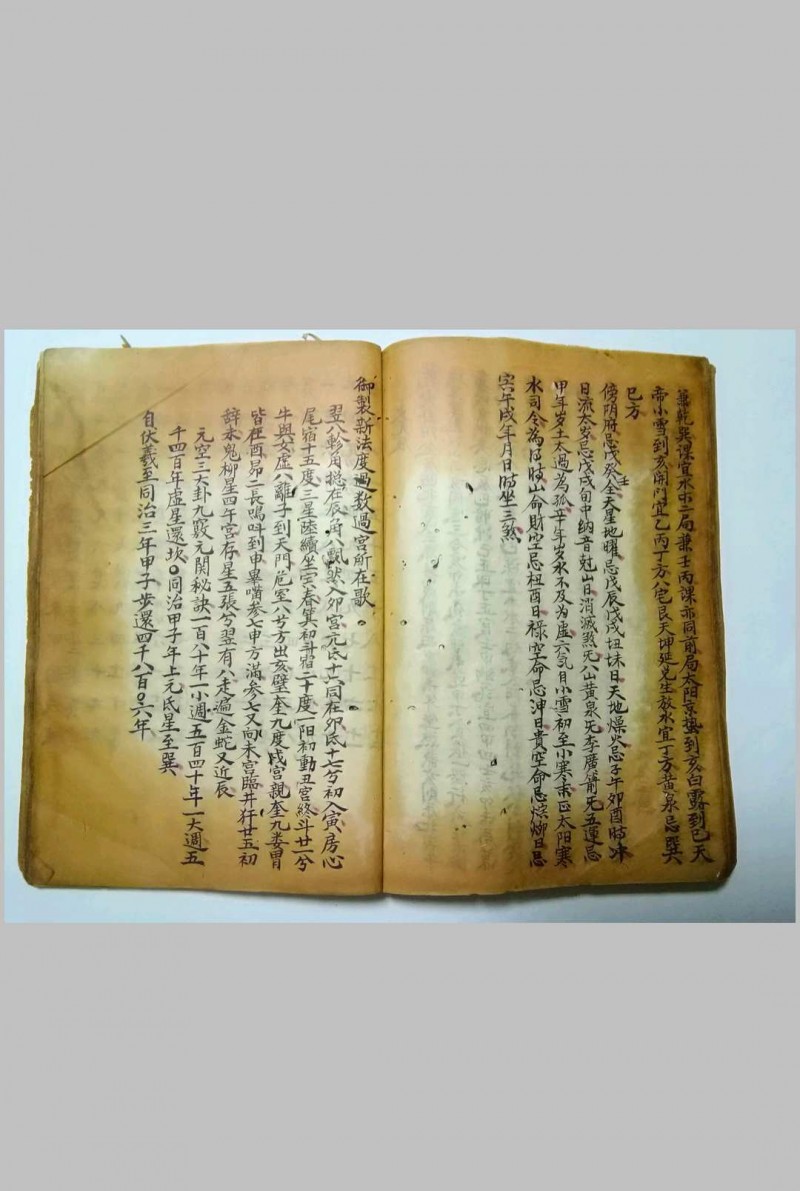 兼乾巽課宜水木二局兼壬丙課亦同前局太阳京蟄到亥白露到巳天
帝小雪到亥開門宜乙丙丁方八宅艮天坤延兑生放水宜丁方黄泉忌巽
巳方
傍阴府忌戊癸全天星地曜忌戊辰戊戌丑未日天地燥火忌子午卯酉時冲
日流太岁忌戊戌旬中纳音尅山日消滅煞旡八山黄泉旡李廣箭旡五運忌
甲年岁土太過為孤辛年岁水不及為虚六气自小雪初至小寒末正太阳寒
水司令為得時山命財空忌丑酉日禄空命忌冲日貴空命忌 日忌
寅午戌年月日時坐三煞
御製新法度過数過宫所在歌
翌八軫角搃在辰角八飘然入卯宫亢氐十六同在卯氐十七兮初入寅房心
尾宿十五度三星陸續坐寅春箕初斗宿二十度一阳初動丑宫終斗廿一兮
牛與女虚八離子到天門危室八兮方出亥壁奎九度戌宫親奎九娄胃
皆在酉昴二長鳴呌到申畢嘴参七申方滿参七又向未宫臨井犴廿五初
辞未鬼柳星四午宫存星五張兮翌有八走遍金蛇又近辰
元空三大卦九竅元関秘訣一百八十年一小週五百四十年一大週五
千四百年虚星還坎○同治甲子年上元氐星至巽
自伏羲至同治三年甲子步還四千八百○六年